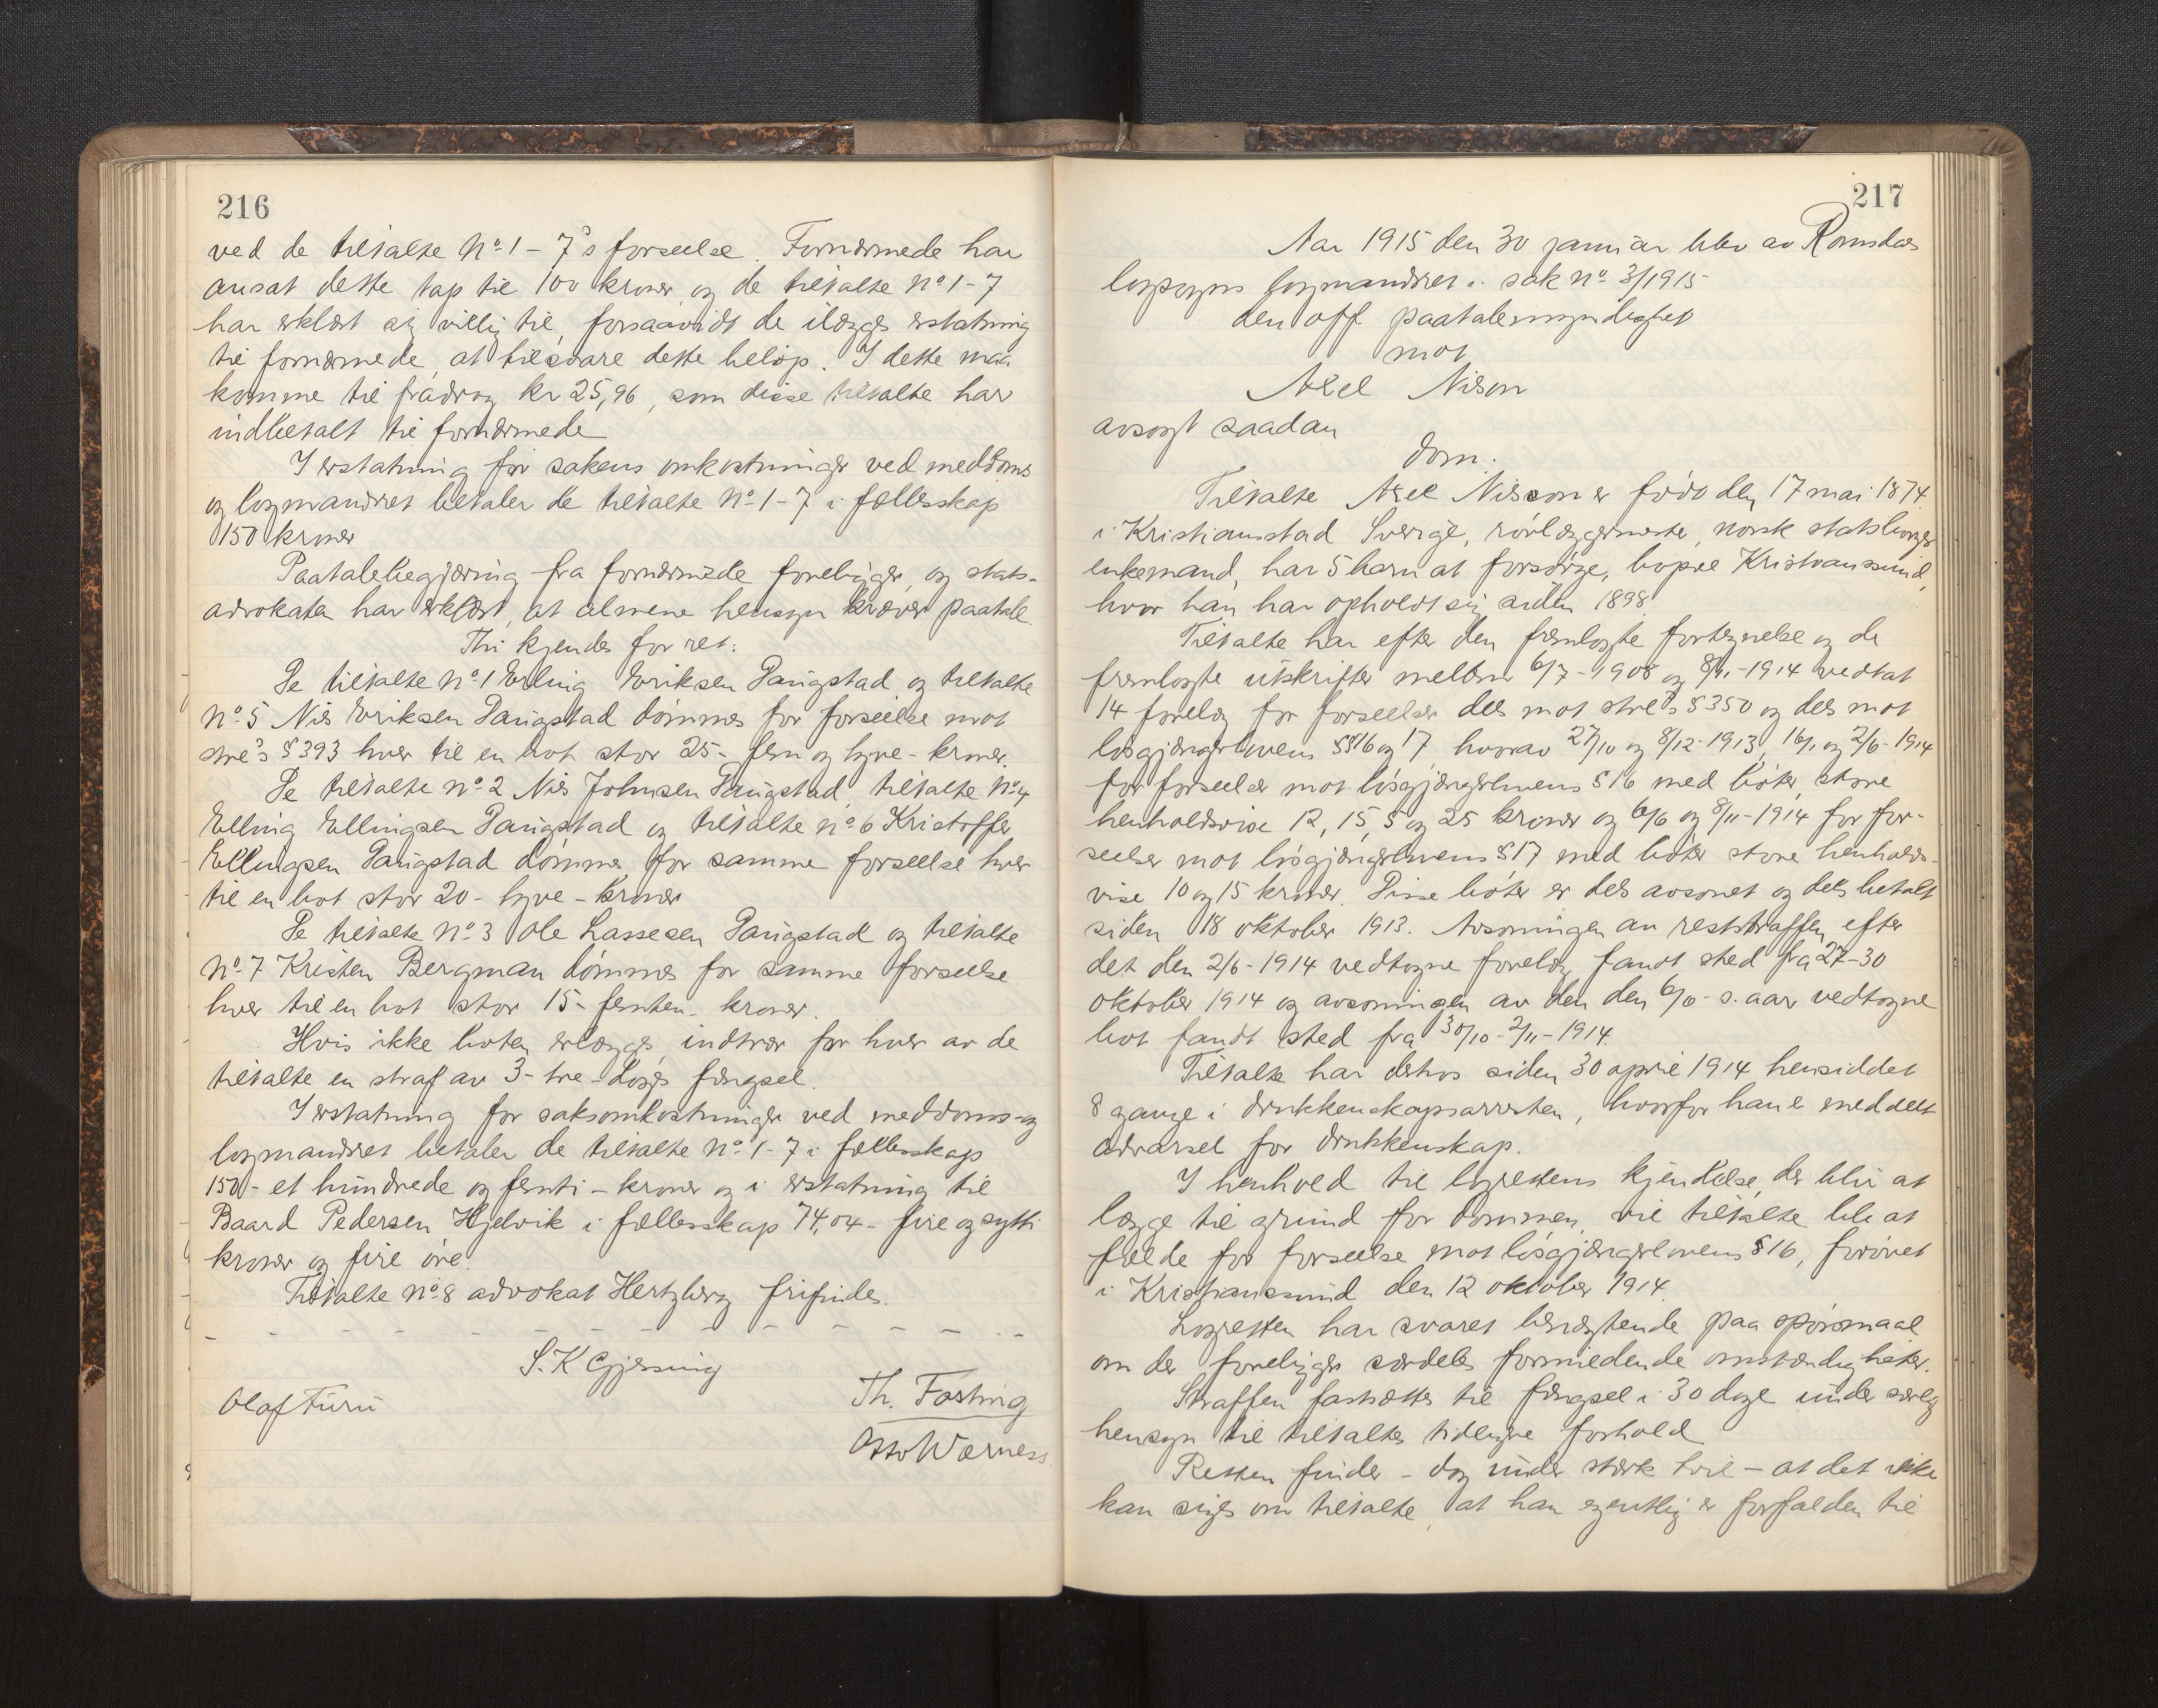 216
ved de tiltalte No 1 – 7's forseelse. Fornærmede har
ansat dette tap til 100 kroner og de tiltalte No 1 - 7
har erklært sig villig til, forsaavidt de ilægges erstatning
til fornærmede, at tilsvare dette beløp. I dette maa
komme til fradrag kr 25,96, som disse tiltalte har
indbetalt til fornærmede
I erstatning for sakens omkostninger ved meddoms
og lagmandsret betaler de tiltalte No 1 - 7 i fællesskap
150 kroner
Paatalebegjæring fra fornærmede foreligger, og stats-
advokaten har erklært, at almene hensyn kræver paatale.
Thi kjendes for ret:
De tiltalte No 1 Erling Eriksen Daugstad og tiltalte
No 5 Nils Eriksen Daugstad dømmes for forseelse mot
strl's § 393 hver til en bot stor 25 - fem og tyve - kroner.
De tiltalte No 2 Nils Johnsen Daugstad, tiltalte No 4
Elling Ellingsen Daugstad og tiltalte No 6 Kristoffer
Ellingsen Daugstad dømmes for samme forseelse hver
til en bot stor 20 - tyve - kroner
De tiltalte No 3 Ole Lassesen Daugstad og tiltalte
No 7 Kristen Bergman dømmes for samme forseelse
hver til en bot stor 15 - femten - kroner.
Hvis ikke boten erlægges, indtrær for hver av de
tiltalte en straf av 3 - tre - dages fængsel.
I erstatning for saksomkostninger ved meddoms- og
lagmandsret betaler de tiltalte No 1 - 7 i fællesskap
150 - et hundrede og femti - kroner og i erstatning til
Baard Pedersen Hjelvik i fællesskap 74,04 - fire og sytti
kroner og fire øre.
Tiltalte No 8 advokat Hertzberg frifindes.
S. K Gjessing
Olaf Furu
Th. Fasting
Otto Warness
217
Aar 1915 den 30 januar blev av Romsdals
lagsogns lagmandsret i sak No 3/1915
den off. paatalemyndighet
mot
Axel Nilson
avsagt saadan
dom:
Tiltalte Axel Nilsson er født den 17 mai 1874
i Kristianstad Sverige, rørlæggermester, norsk statsborger
enkemand, har 5 barn at forsørge, bopæl Kristianssund,
hvor han har opholdt sig siden 1898.
Tiltalte har efter den fremlagte fortegnelse og de
fremlagte utskrifter mellem 6/7 - 1908 og 8/11 - 1914 vedtat
14 forelæg for forseelser dels mot strl's § 350 og dels mot
løsgjængerlovens §§ 16 og 17, hvorav 27/10 og 8/12 - 1913, 16/1 og 2/6 - 1914
for forseelser mot løsgjængerlovens § 16 med bøter, store
henholdsvise 12, 15, 5 og 25 kroner og 6/6 og 8/11 - 1914 for for-
seelser mot løsgjængerlovens § 17 med bøter store henholds-
vise 10 og 15 kroner. Disse bøter er dels avsonet og dels betalt
siden 18 oktober 1913. Avsoningen av reststraffen efter
det den 2/6 - 1914 vedtagne forelæg fandt sted fra 27 - 30
oktober 1914 og avsoningen av den den 6/6 - s. aar vedtagne
bot fandt sted fra 30/10 - 2/11 - 1914.
Tiltalte har derhos siden 30 april 1914 hensiddet
8 gange i drukkenskapsarresten, hvorfor han er meddelt
advarsel for drukkenskap.
I henhold til lagrettens kjendelse, der blir at
lægge til grund for dommen, vil tiltalte bli at
fælde for forseelse mot løsgjængerlovens § 16, forøvet
i Kristianssund den 12 oktober 1914.
Lagretten har svaret benægtende paa spørsmaal
om der foreligger særdeles formildende omstændigheter.
Straffen fastsættes til fængsel i 30 dage under særlig
hensyn til tiltaltes tidligere forhold
Retten finder - dog under stærk tvil - at det ikke
kan siges om tiltalte, at han egentlig er forfalden til